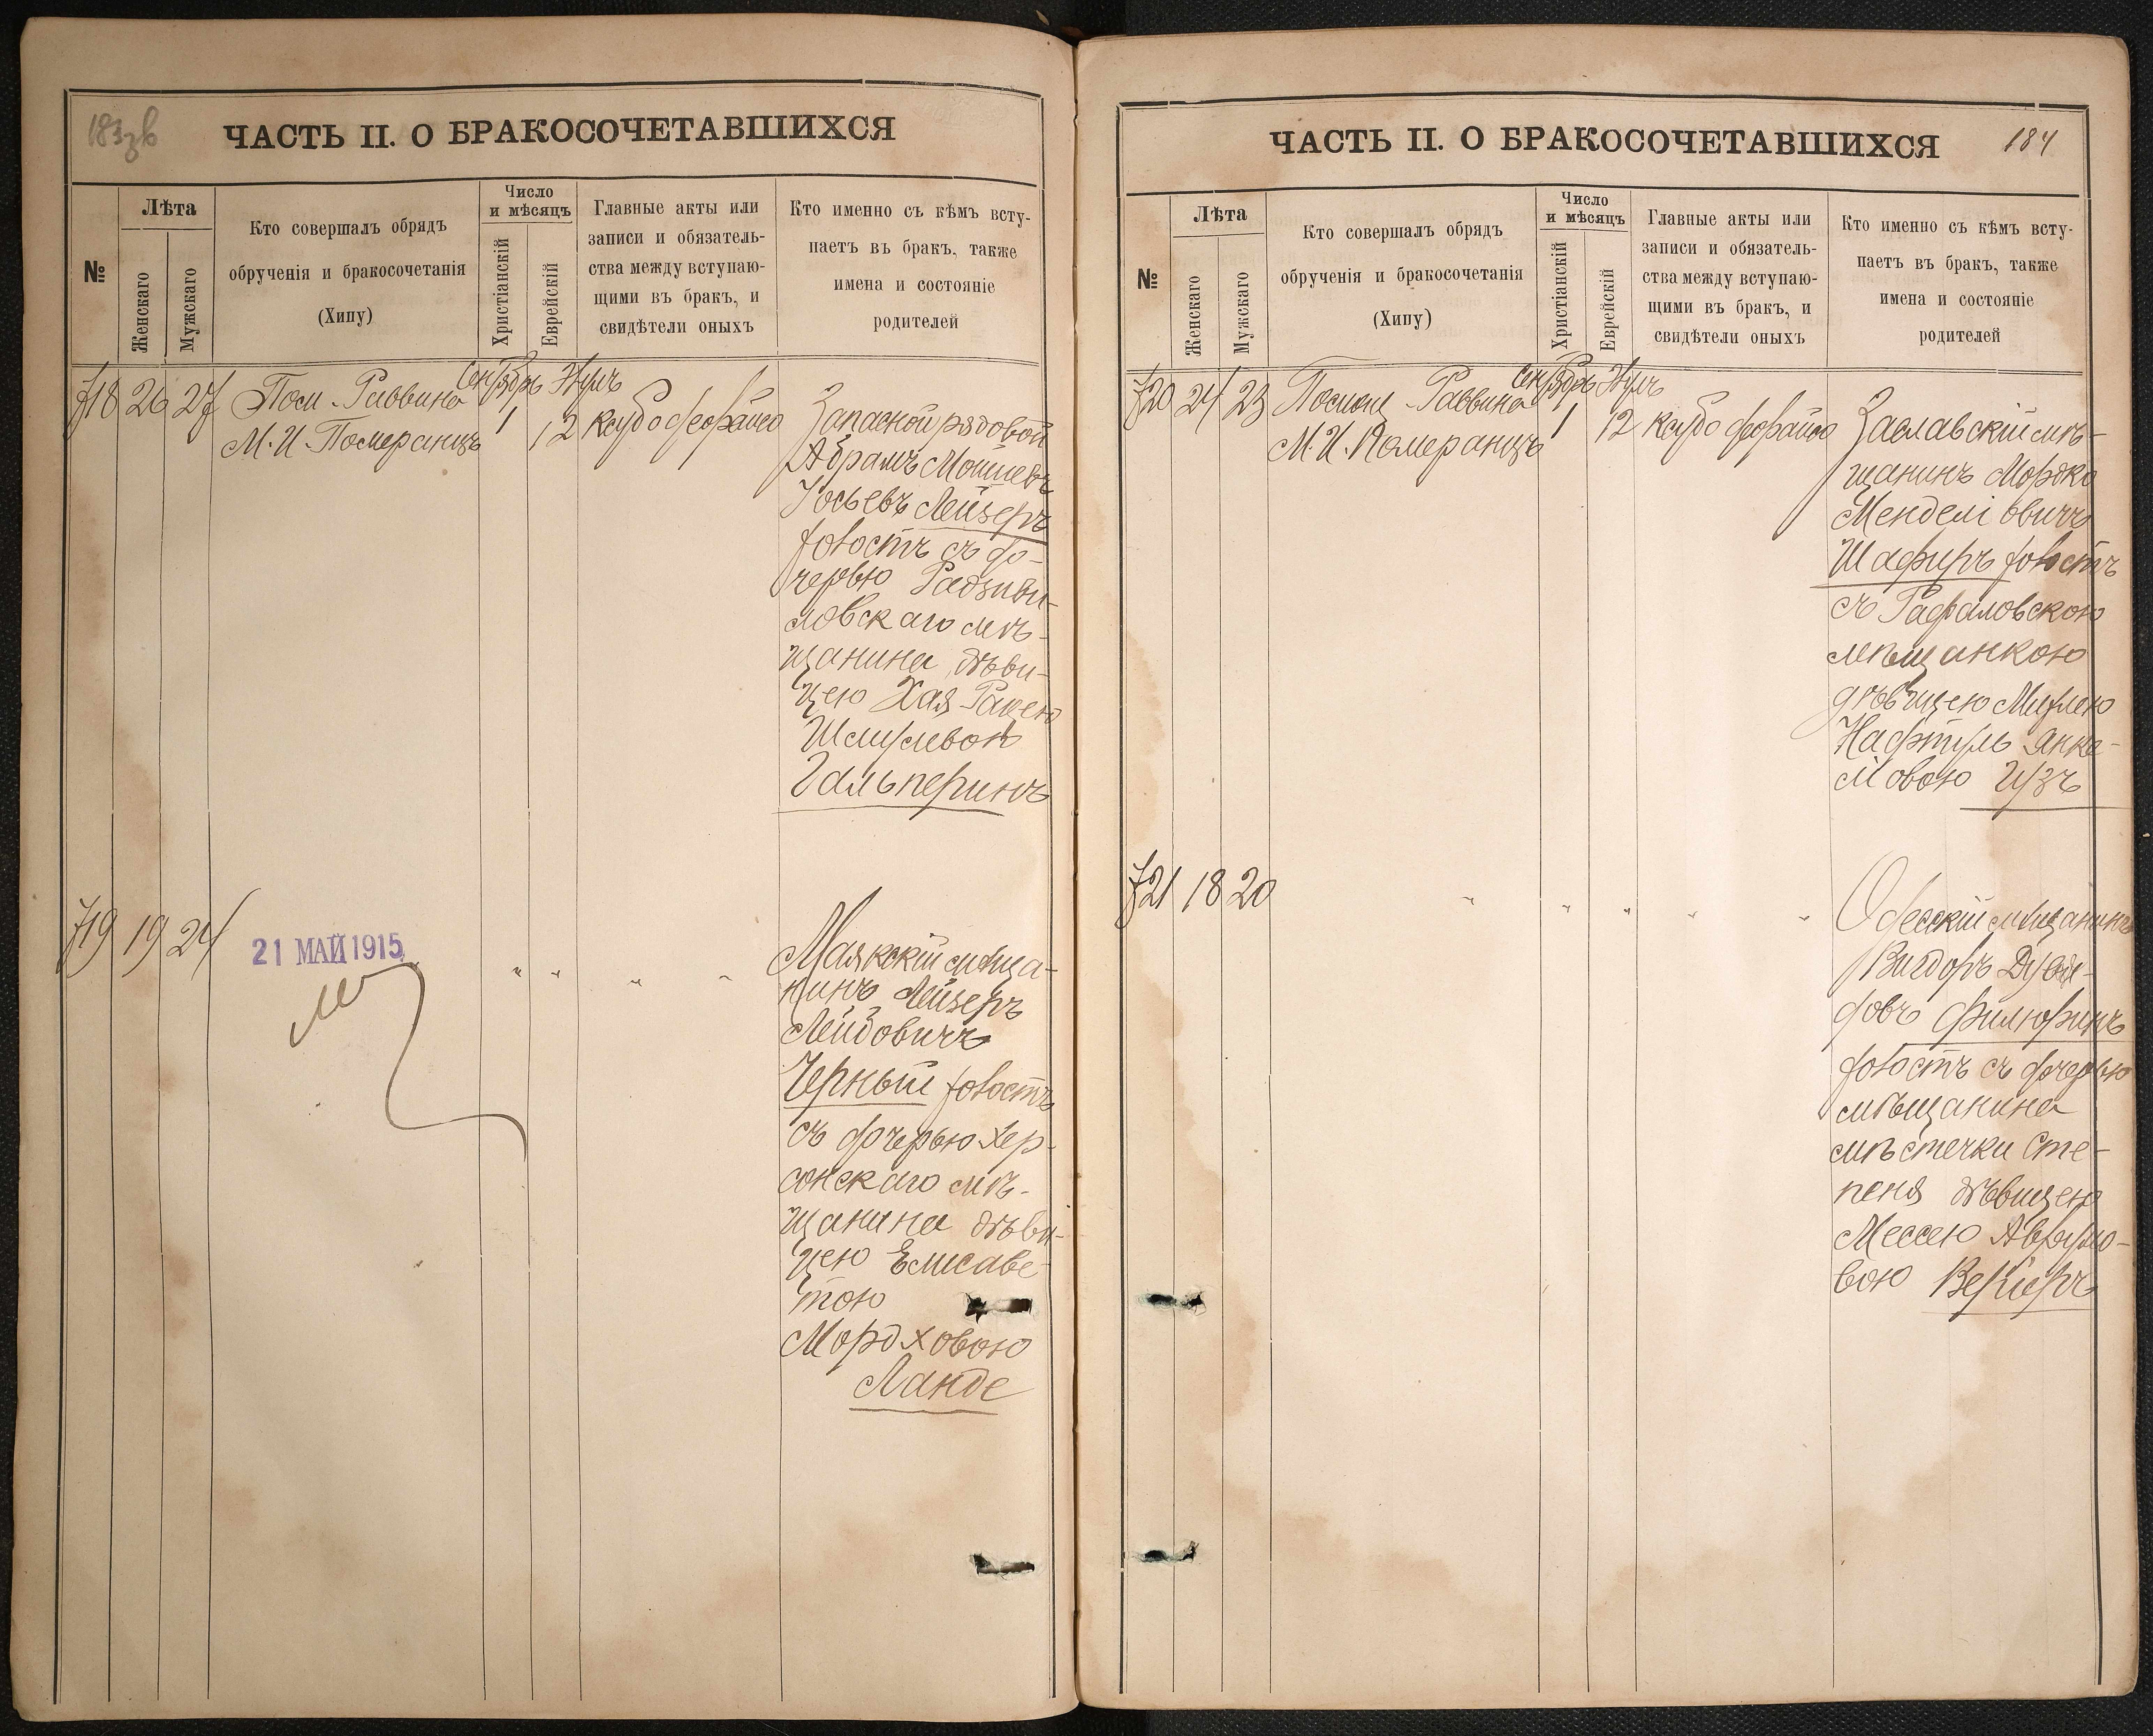 183зв
ЧАСТЬ II. О БРАКОСОЧЕТАВШИХСЯ
№
Лѣта
Женскаго
Мужскаго
Кто совершалъ обрядъ
обрученія и бракосочетанія
(Хипу)
Число
и мѣсяцъ
Христіанскій
Еврейскій
Главные акты или
записи и обязатель-
ства между вступаю-
щими въ бракъ, и
свидѣтели оныхъ
Кто именно съ кѣмъ всту-
паетъ въ бракъ, также
имена и состояніе
родителей
718 26 27
Пом. Раввина
М. И. Померанцъ
1
12
Запасной рядовой
Абрамъ Мойшевъ
Іосьевъ Лейзеръ
холостъ съ до-
черью Радзиви-
ловскаго мѣ-
щанина дѣви-
цею Хая-
Шмулевою
Гальперинъ
719 19 24
21 МАЙ 1915
" " " "
Маякскій мѣща-
нинъ Лейзеръ
Лейбовичъ
Черный холостъ
съ дочерью Хер-
сонскаго мѣ-
щанина дѣви-
цею Елисаве-
тою
Мордховою
Ланде
184
ЧАСТЬ II. О БРАКОСОЧЕТАВШИХСЯ
№
Лѣта
Женскаго
Мужскаго
Кто совершалъ обрядъ
обрученія и бракосочетанія
(Хипу)
Число
и мѣсяцъ
Христіанскій
Еврейскій
Главные акты или
записи и обязатель-
ства между вступаю-
щими въ бракъ, и
свидѣтели оныхъ
Кто именно съ кѣмъ всту-
паетъ въ бракъ, также
имена и состояніе
родителей
720 24 23
Помощ. Раввина
М. И. Померанцъ
1
12
Заславскій мѣ-
щанинъ Мордко
Менделіовичъ
Шафиръ холостъ
съ Рафаловскою
мѣщанкою
дѣвицею
Нафтуль Янке-
левою Гузъ
721 18 20
" " " " "
Одесскій мѣщанинъ
Вигдоръ
холостъ съ дочерью
мѣщанина
мѣстечки Сте-
пеня дѣвицею
Мессею Аврумо-
вою